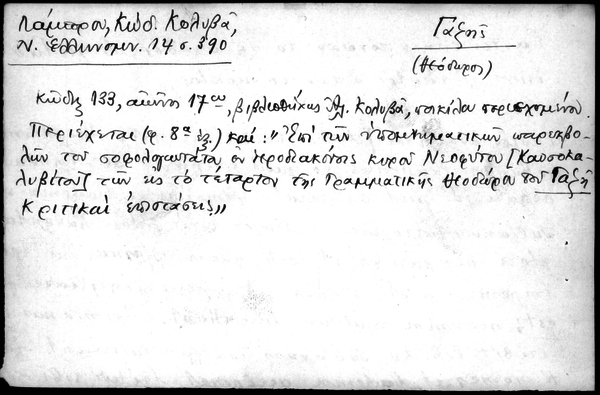 Λάμπρου, Κώδ. Κολυβᾶ,
Ν. Ἑλληνομν. 14 σ. 390
Γαζῆς
(Θεόδωρος)
Κῶδιξ 133, αἰῶνος 17ου, βιβλιοθήκης Ἀλ. Κολυβᾶ, ποικίλου περιεχομένου.
Περιέχεται (φ. 8α ἑξ.) καί: "Ἐπὶ τῶν ὑπομνηματικῶν παρεκβο-
λῶν τοῦ σοφολογιωτάτου ἐν ἱεροδιακόνοις κυροῦ Νεοφύτου [Καυσοκα-
λυβίτου] τῶν εἰς τὸ τέταρτον τῆς Γραμματικῆς Θεοδώρου τοῦ Γαζῆ
Κριτικαὶ ἐπιστάσεις"